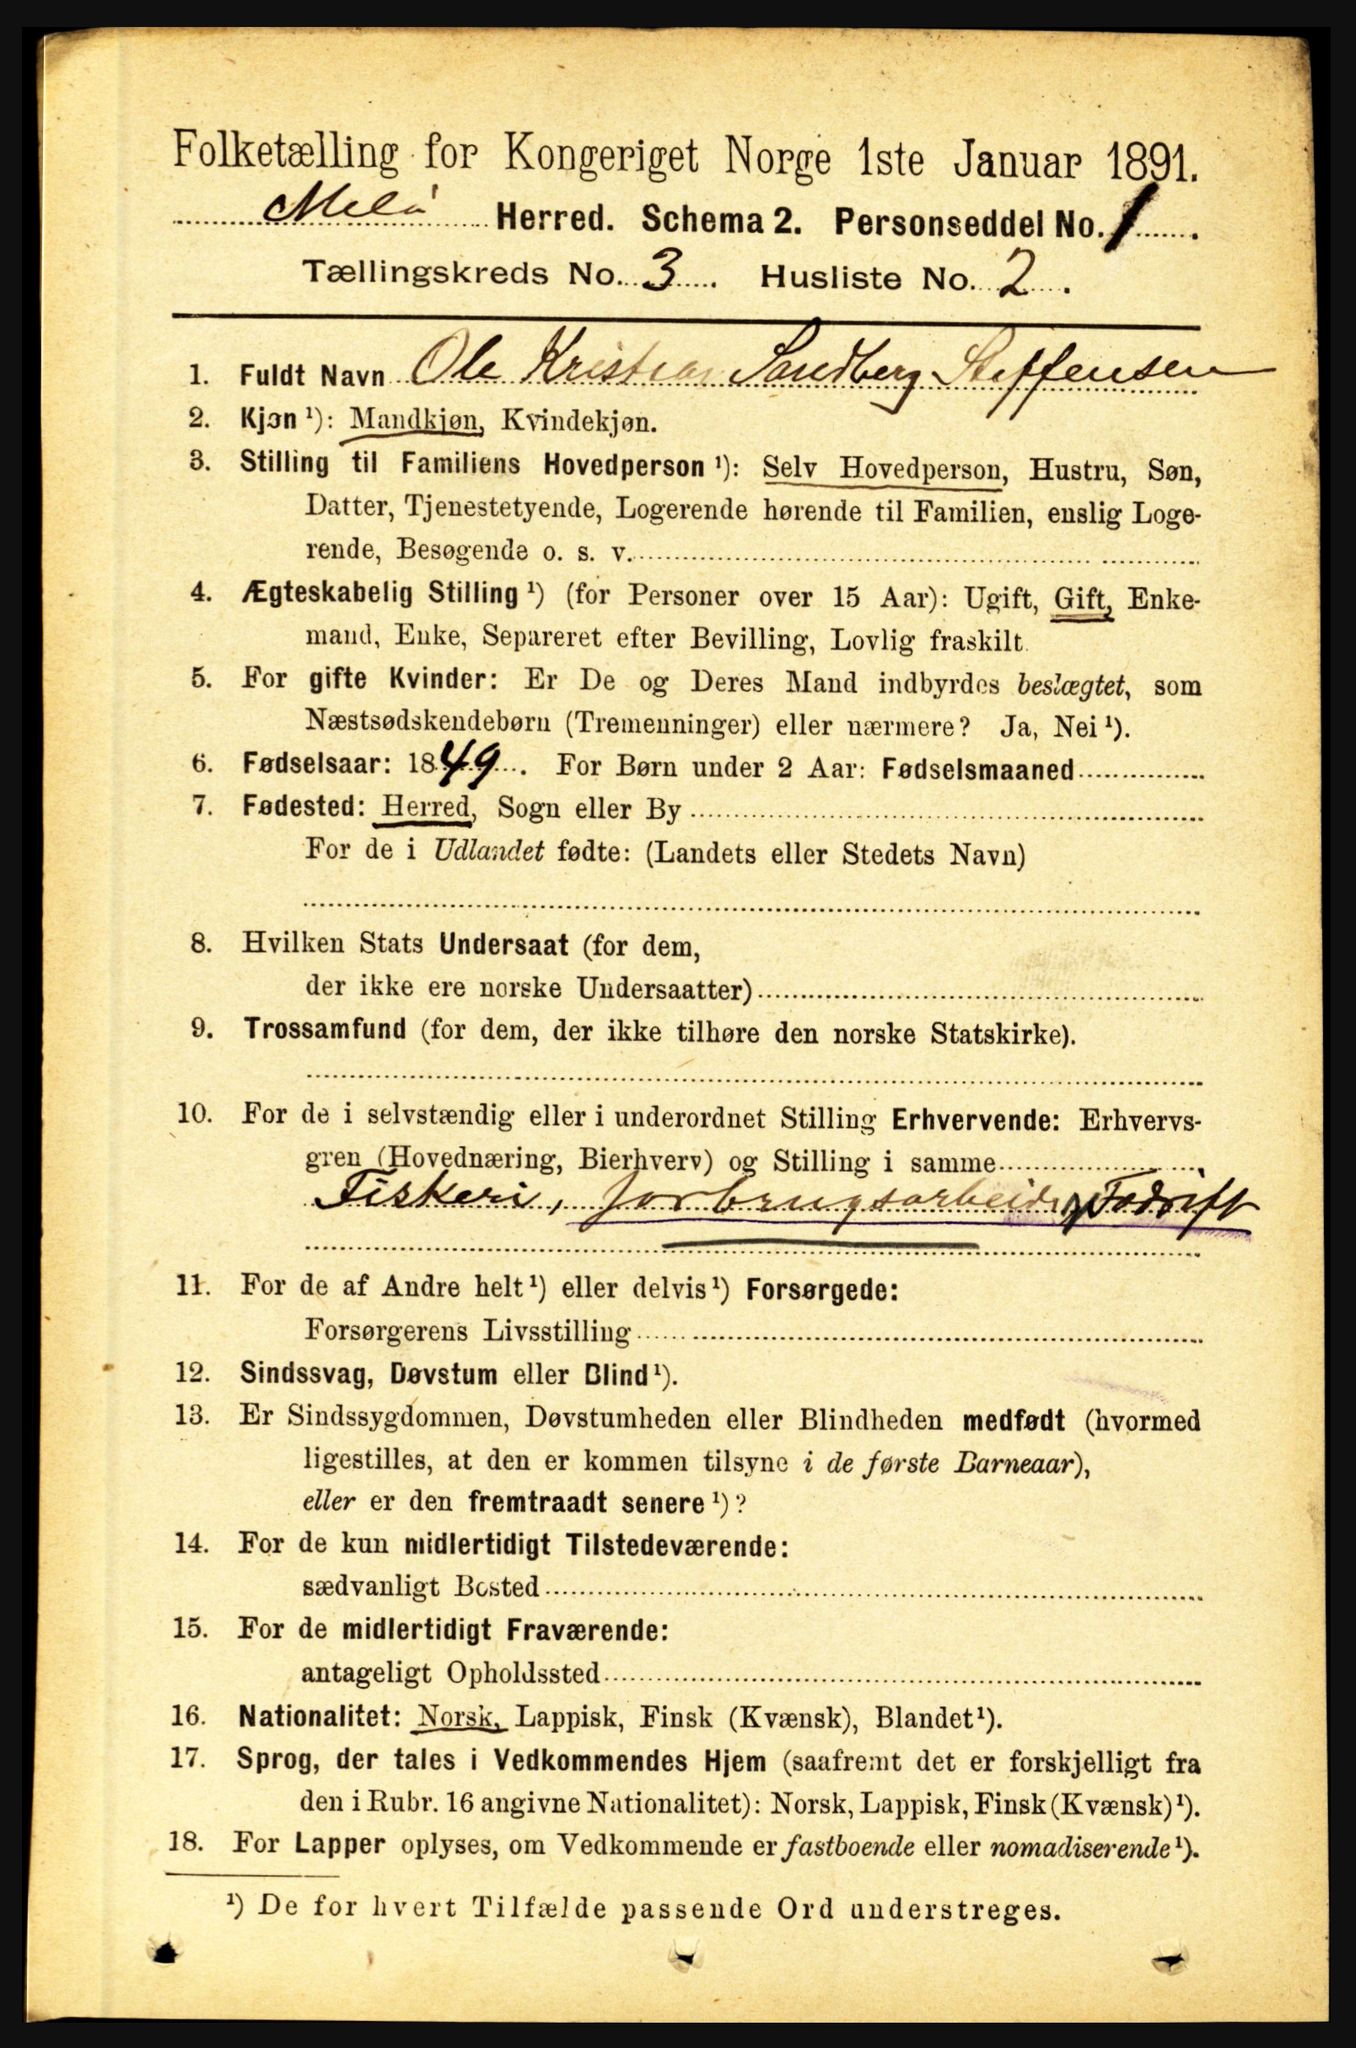 Folketælling for Kongeriget Norge 1ste Januar 1891.
Melö Herred. Schema 2. Personseddel No. 1
Tællingskreds No. 3. Husliste No. 2.
1. Fuldt Navn Ole Kristian Sandberg Steffensen
2. Kjøn ¹): Mandkjøn, Kvindekjøn.
3. Stilling til Familiens Hovedperson ¹): Selv Hovedperson, Hustru, Søn,
Datter, Tjenestetyende, Logerende hørende til Familien, enslig Loge-
rende, Besøgende o. s. v.
4. Ægteskabelig Stilling ¹) (for Personer over 15 Aar): Ugift, Gift, Enke-
mand, Enke, Separeret efter Bevilling, Lovlig fraskilt.
5. For gifte Kvinder: Er De og Deres Mand indbyrdes beslægtet, som
Næstsødskendebørn (Tremenninger) eller nærmere? Ja, Nei ¹).
6. Fødselsaar: 1849. For Børn under 2 Aar: Fødselsmaaned
7. Fødested: Herred, Sogn eller By
For de i Udlandet fødte: (Landets eller Stedets Navn)
8. Hvilken Stats Undersaat (for dem,
der ikke ere norske Undersaatter)
9. Trossamfund (for dem, der ikke tilhøre den norske Statskirke).
10. For de i selvstændig eller i underordnet Stilling Erhvervende: Erhvervs-
gren (Hovednæring, Bierhverv) og Stilling i samme
Fiskeri, Jordbrugsarbeide
11. For de af Andre helt ¹) eller delvis ¹) Forsørgede:
Forsørgerens Livsstilling
12. Sindssvag, Døvstum eller Blind ¹).
13. Er Sindssygdommen, Døvstumheden eller Blindheden medfødt (hvormed
ligestilles, at den er kommen tilsyne i de første Barneaar),
eller er den fremtraadt senere ¹)?
14. For de kun midlertidigt Tilstedeværende:
sædvanligt Bosted
15. For de midlertidigt Fraværende:
antageligt Opholdssted
16. Nationalitet: Norsk, Lappisk, Finsk (Kvænsk), Blandet ¹).
17. Sprog, der tales i Vedkommendes Hjem (saafremt det er forskjelligt fra
den i Rubr. 16 angivne Nationalitet): Norsk, Lappisk, Finsk (Kvænsk) ¹).
18. For Lapper oplyses, om Vedkommende er fastboende eller nomadiserende ¹).
¹) De for hvert Tilfælde passende Ord understreges.